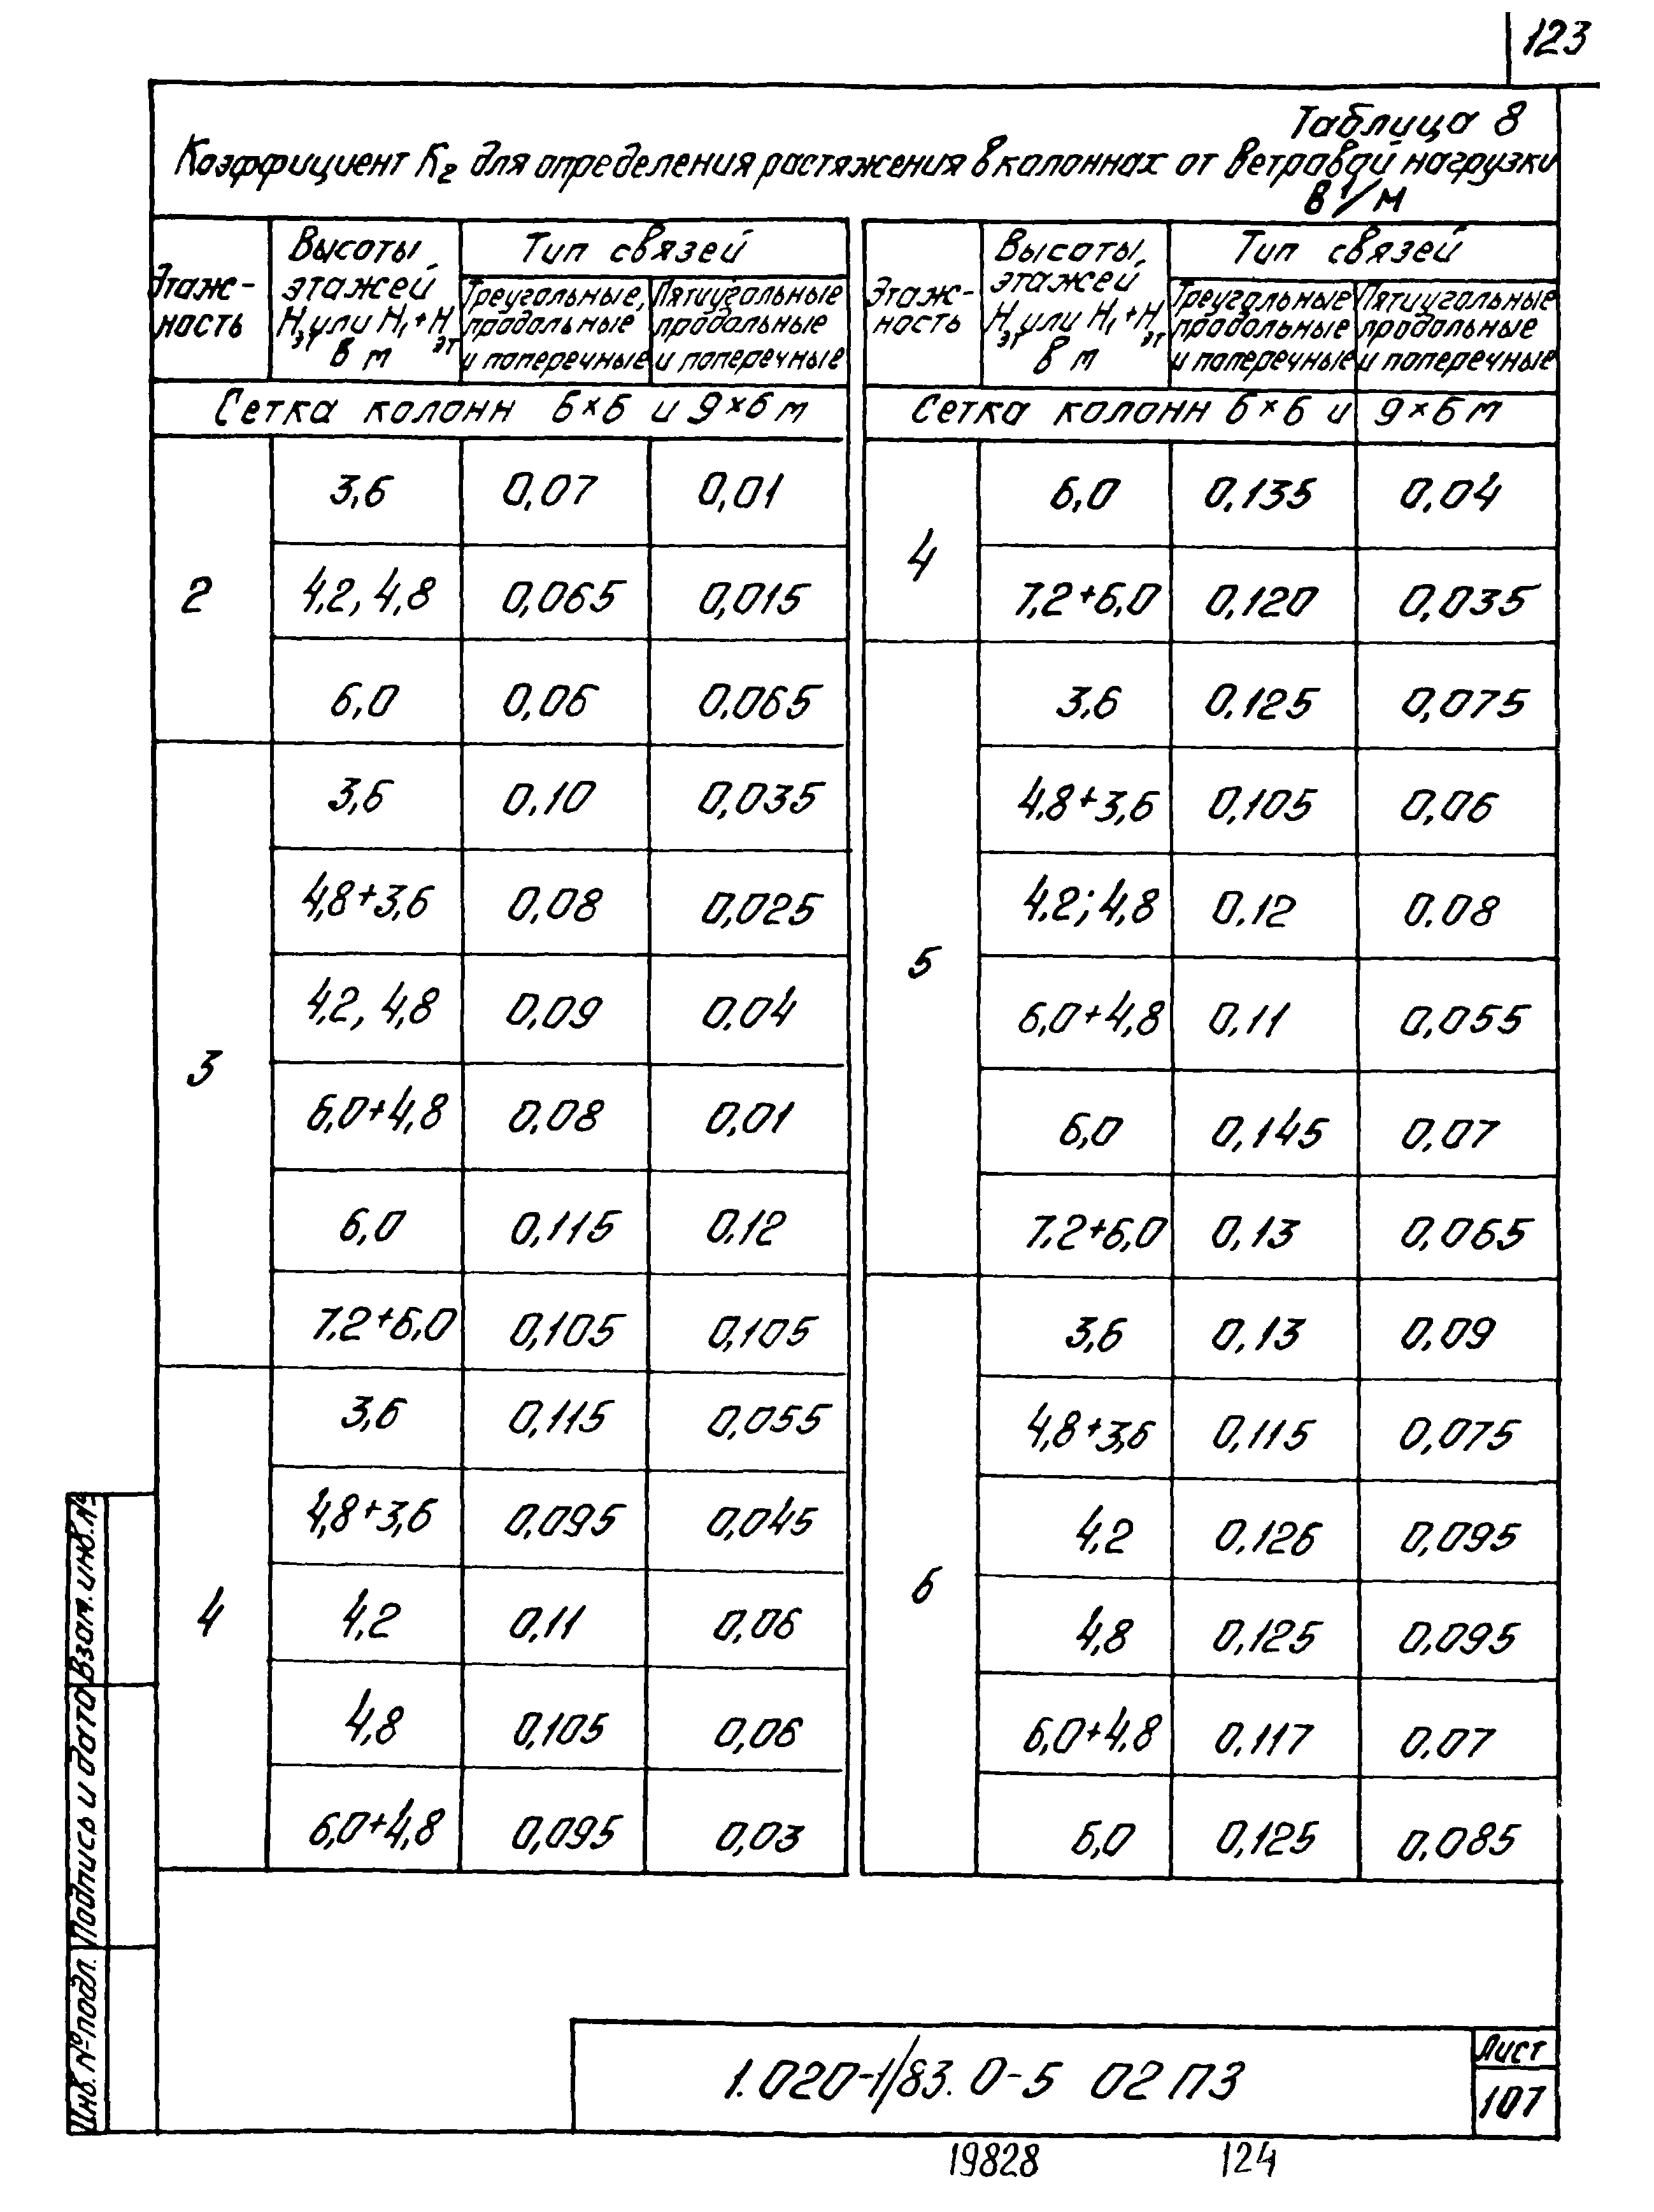 123
Таблица 8
Коэффициент К₂ для определения растяжения в колоннах от ветровой нагрузки
в 1/м
Этаж-
ность
Высоты
этажей
Нэт или Н₁+Нэт
в м
Тип связей
Треугольные,
продольные
и поперечные
Пятиугольные
продольные
и поперечные
Сетка колонн 6×6 и 9×6 м
2
3,6 0,07 0,01
4,2, 4,8 0,065 0,015
6,0 0,06 0,065
3
3,6 0,10 0,035
4,8+3,6 0,08 0,025
4,2, 4,8 0,09 0,04
6,0+4,8 0,08 0,01
6,0 0,115 0,12
7,2+6,0 0,105 0,105
4
3,6 0,115 0,055
4,8+3,6 0,095 0,045
4,2 0,11 0,06
4,8 0,105 0,06
6,0+4,8 0,095 0,03
Этаж-
ность
Высоты,
этажей
Нэт или Н₁+Нэт
в м
Тип связей
Треугольные
продольные
и поперечные
Пятиугольные
продольные
и поперечные
Сетка колонн 6×6 и 9×6 м
4
6,0 0,135 0,04
7,2+6,0 0,120 0,035
5
3,6 0,125 0,075
4,8+3,6 0,105 0,06
4,2; 4,8 0,12 0,08
6,0+4,8 0,11 0,055
6,0 0,145 0,07
7,2+6,0 0,13 0,065
6
3,6 0,13 0,09
4,8+3,6 0,115 0,075
4,2 0,126 0,095
4,8 0,125 0,095
6,0+4,8 0,117 0,07
6,0 0,125 0,085
Взам. инв. №
Подпись и дата
Инв. № подл.
1.020-1/83. 0-5 02 ПЗ
Лист
107
19828 124